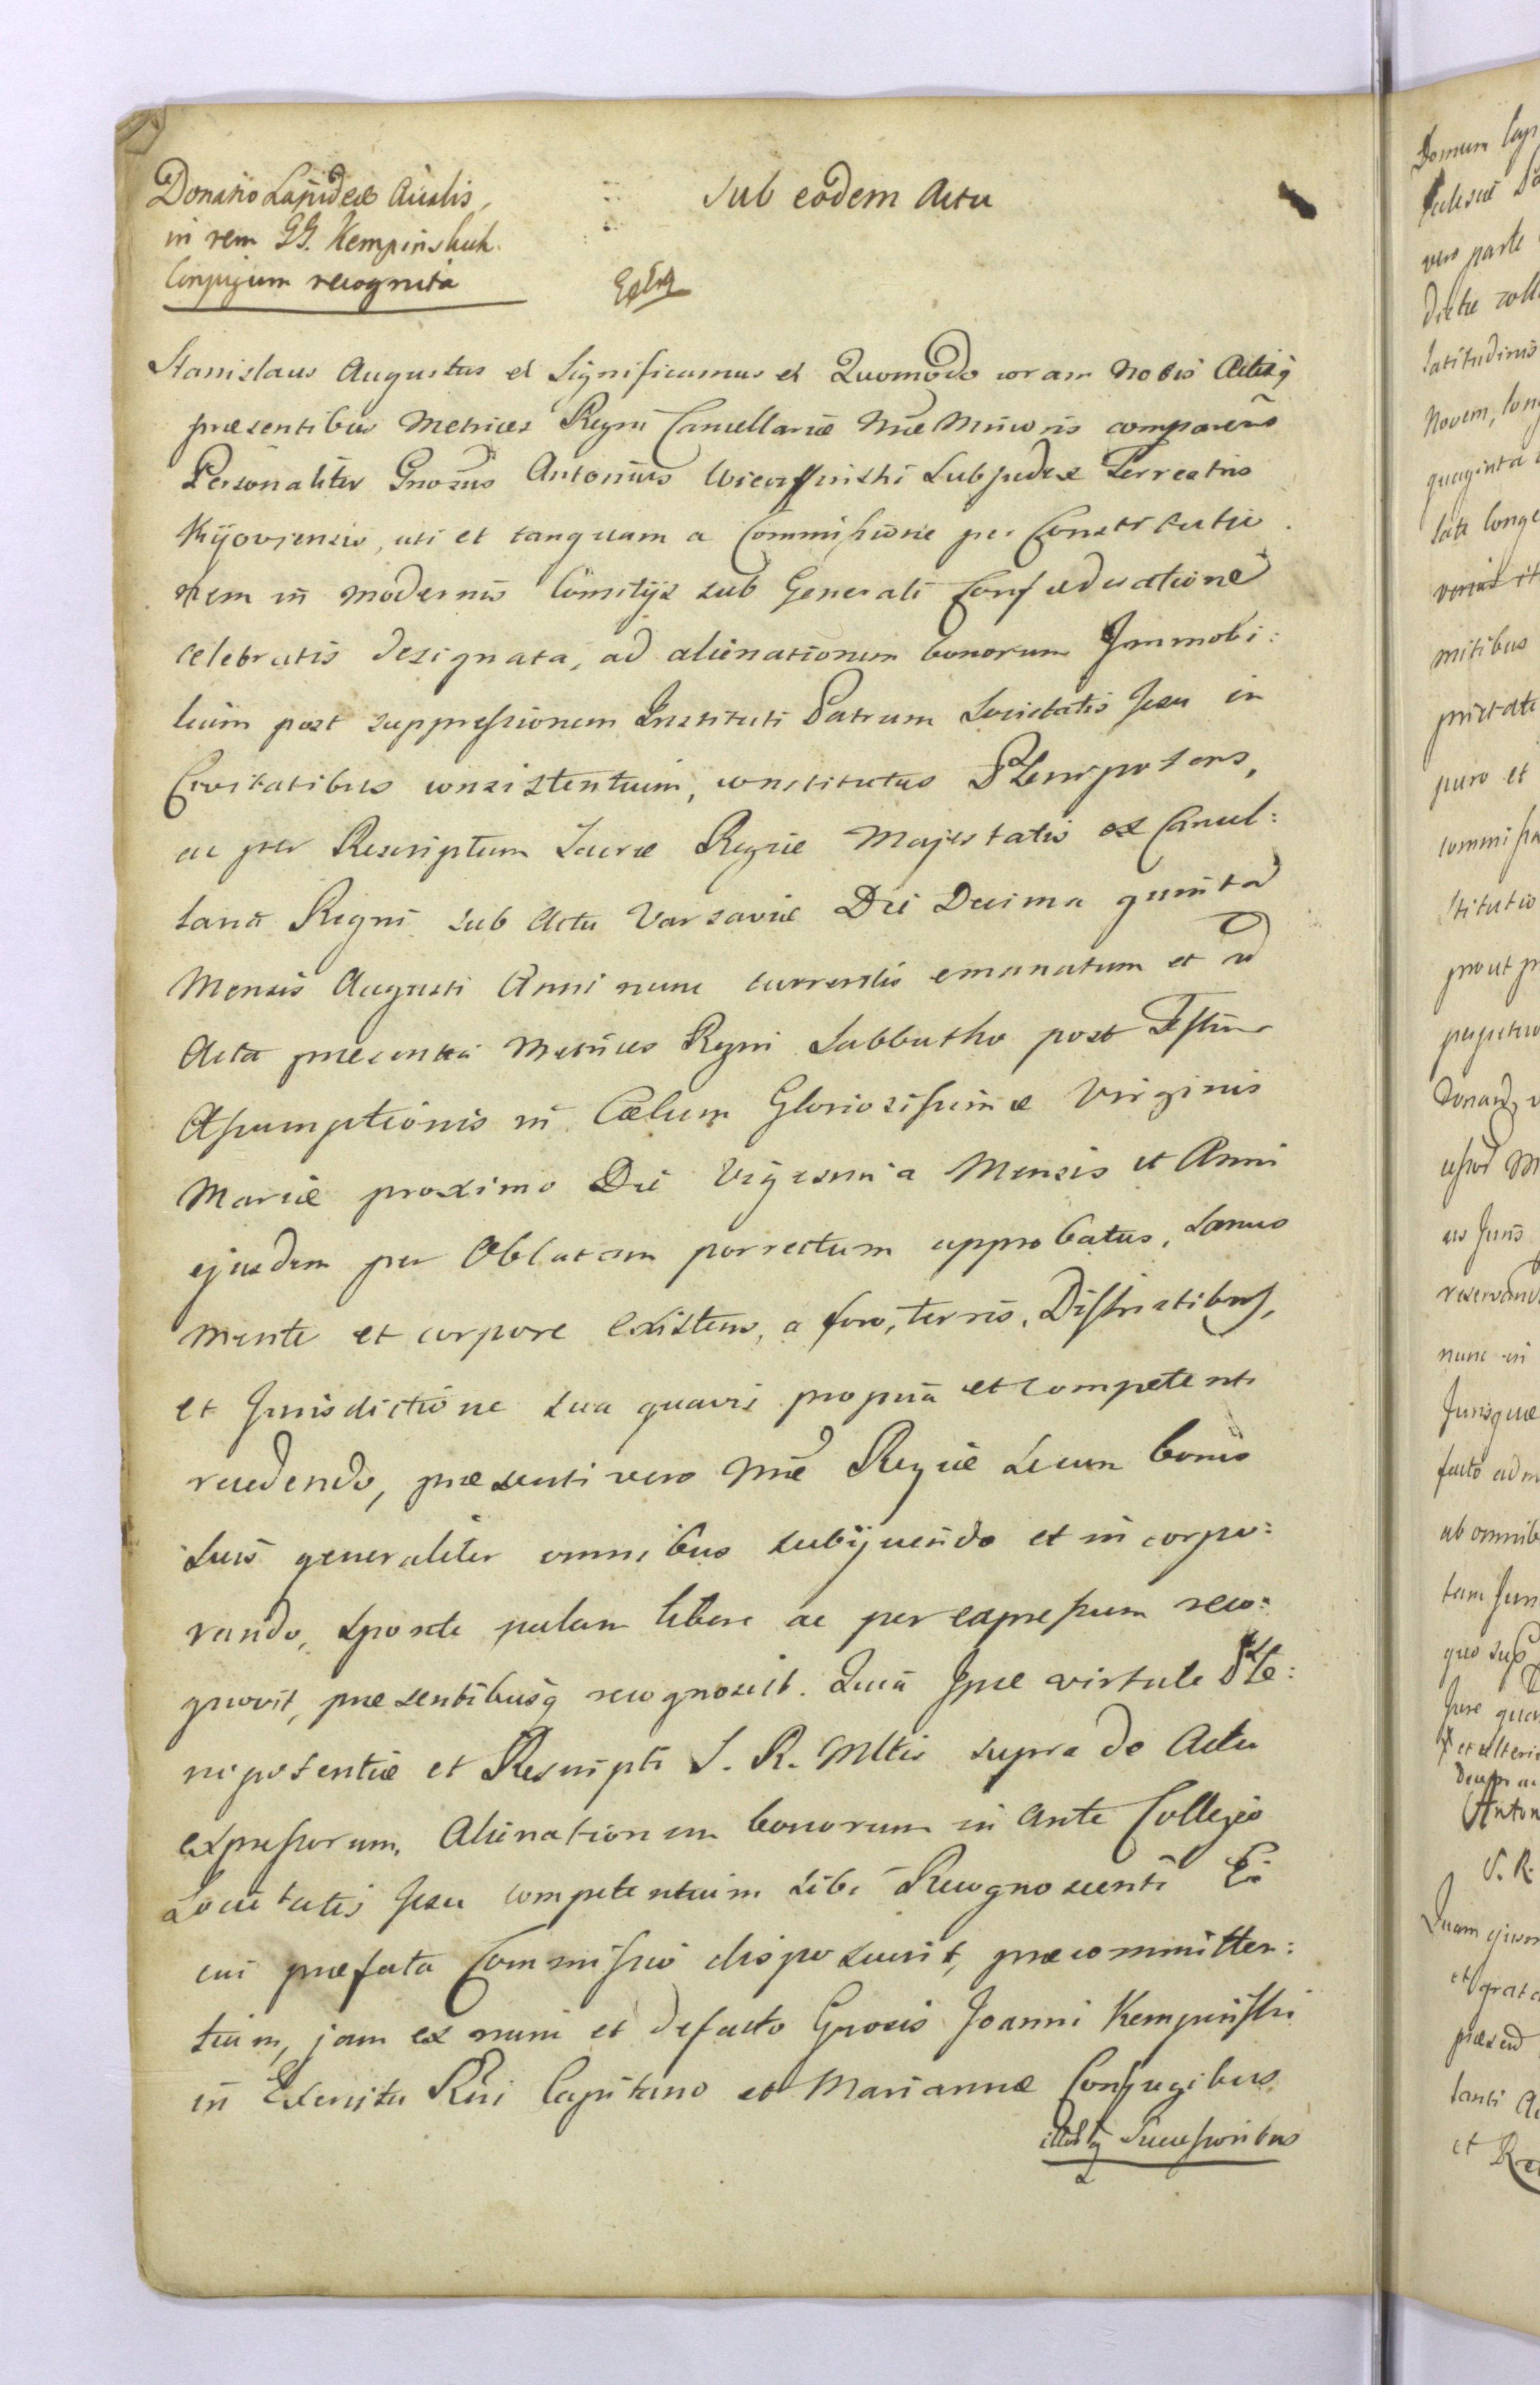 Donatio Lapideæ Avialis,
in rem GG. Kempinskich
Conjugum recognita
Sub eodem Actu
Stanislaus Augustus et Significamus et Quomodo coram Nobis Actisq
præsentibus Metrices Regni Cancellariæ Nræ Minoris comparens
Personaliter Gnosus Antonius Subjudex Terrestris
Kijoviensis, uti et tanquam a Commissione per Constitutio
nem in modernis Comitijs sub Generali Confæderatione
celebratis designata, ad alienationem bonorum Immobi:
lium post suppressionem Instituti Patrum Societatis Jesu in
Civitatibus consistentium, constitutus Plenipotens,
ac per Rescriptum Sacræ Regiæ Majestatis ex Cancel:
laria Regni sub Actu Varsaviæ Die Decima quinta
Mensis Augusti Anni nunc currentis emanatum et ad
Acta præsentia Metrices Regni Sabbatho post Festum
Assumptionis in Cælum Gloriosissimæ Virginis
Mariæ proximo Die Vigesima Mensis et Anni
ejusdem per Oblatam porrectum approbatus, Sanus
mente et corpore existens, a foro, terris, Districtibus,
et Jurisdictione sua quavis propria et competenti
recedendo, præsenti vero Nræ Regiæ secum bonis
suis generaliter omnibus subijciendo et incorpo:
rando, sponte palam libere ac per expressum reco:
gnovit, præsentibusq recognoscit. Quia Ipse virtute Ple:
nipotentiæ et Rescripti S. R. Mttis supra de Actu
expressorum, Alienationem bonorum in ante Collegio
Societatis Jesu competentium sibi Recognoscenti Ei
cui præfata Commissio disposuerit, præcommitten:
tium, jam ex nunc et defacto Gnosis Joanni Kempinski
in Exercitu Rni Capitano et Mariannæ Conjugibus
illorq Successoribus